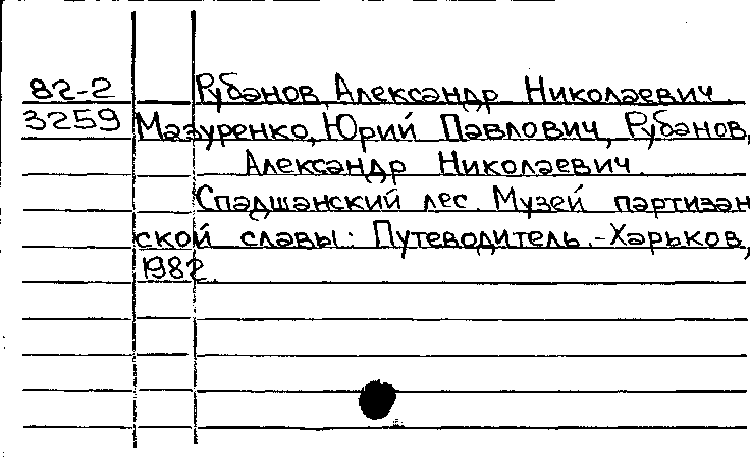 82-2 Рубанов, Александр Николаевич.
3259 Мазуренко, Юрий Павлович, Рубанов,
Александр Николаевич.
Спадщанский лес. Музей партизан
ской славы: Путеводитель.-Харьков,
1982.